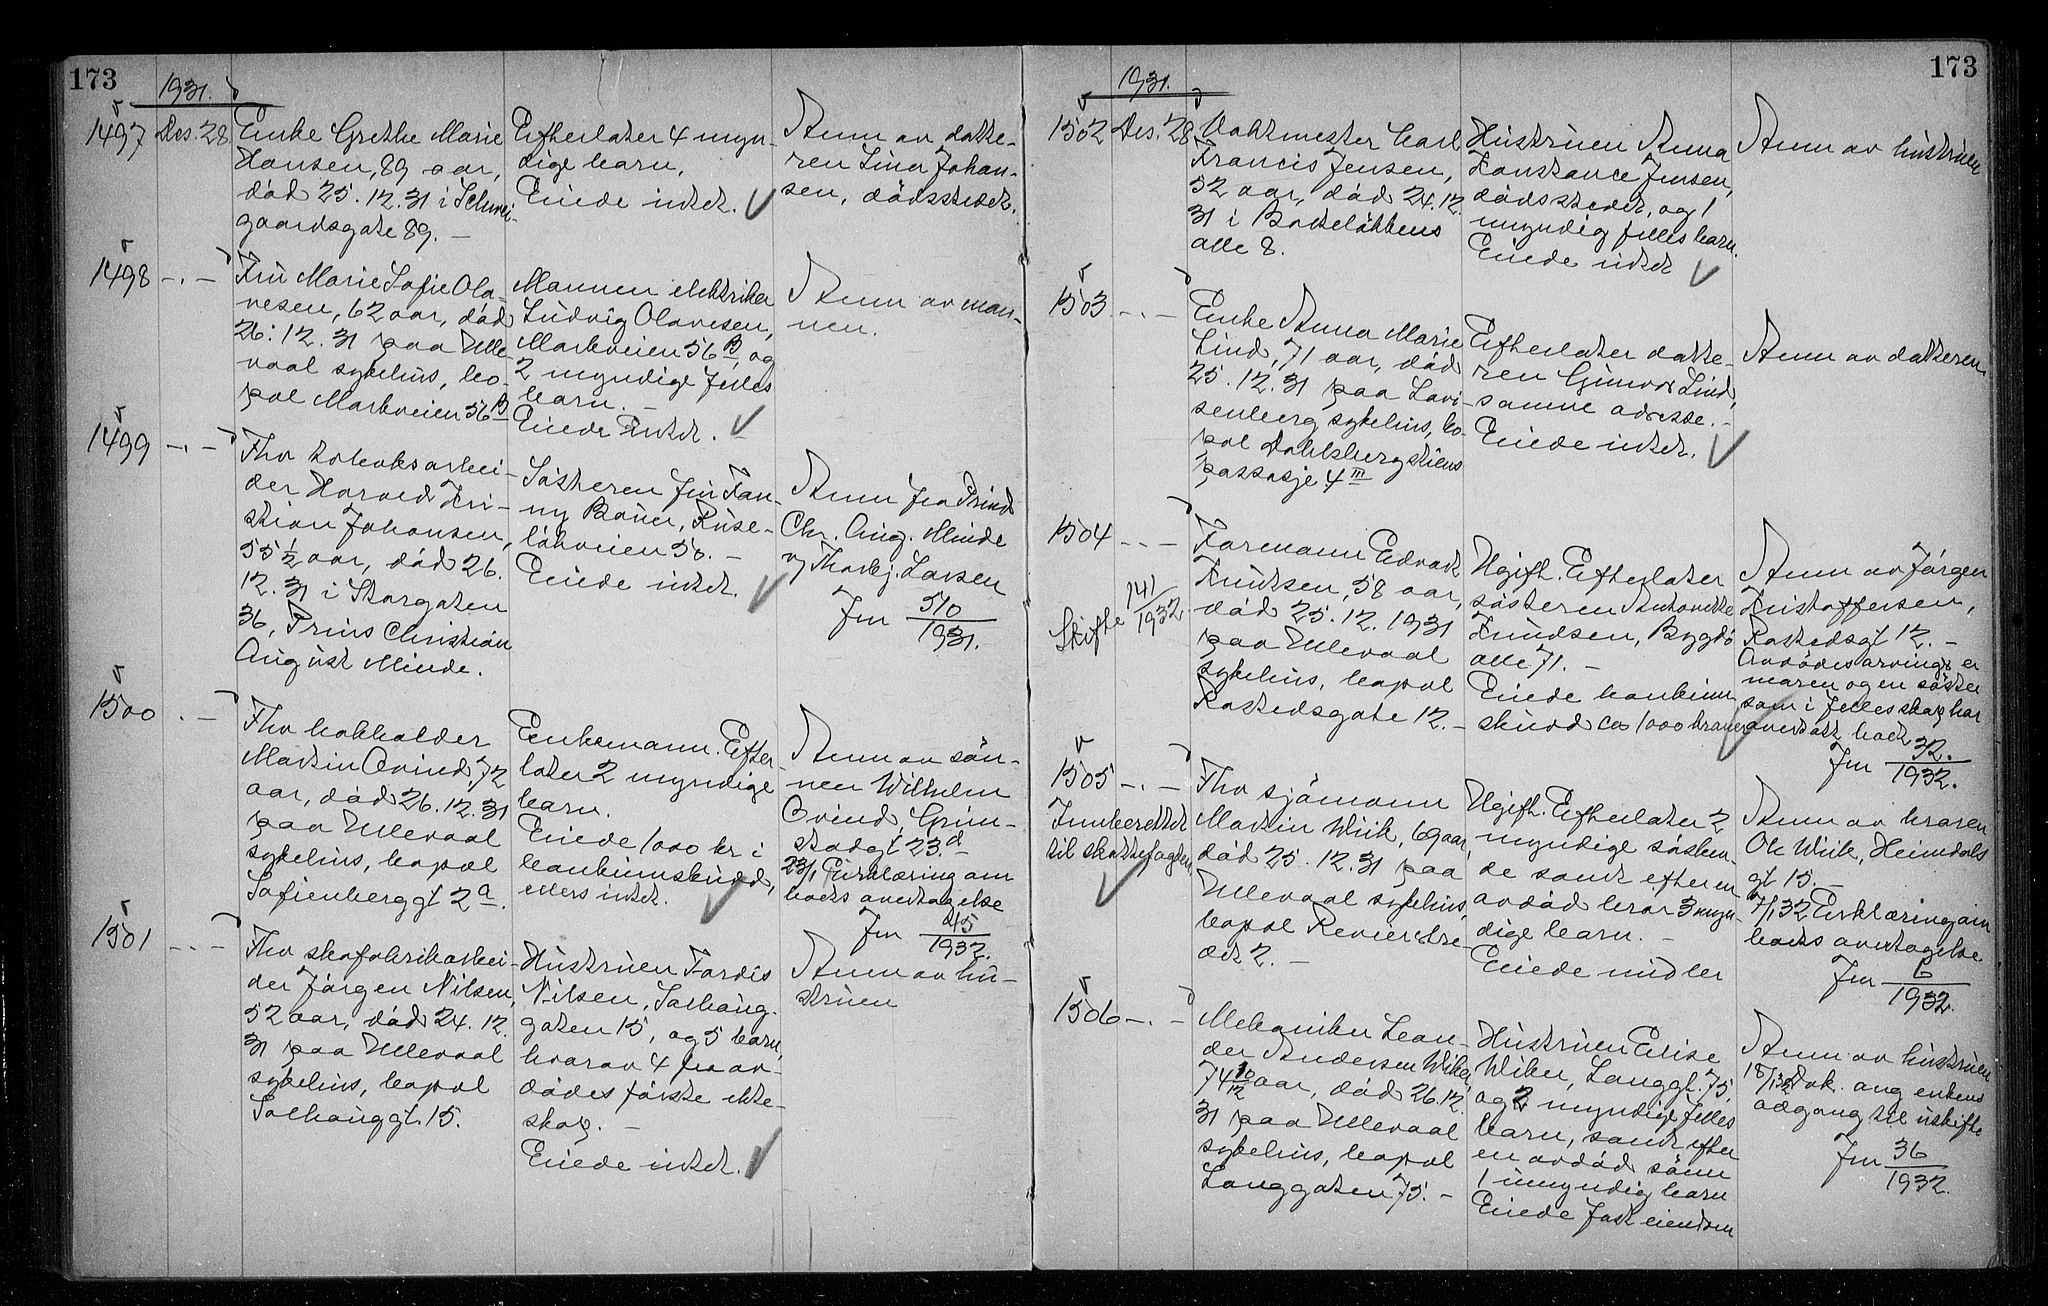 173
1931.
1497 Des. 28.
Enke Grethe Marie
Hansen, 89 aar,
død 25.12.31 i Schwei-
gaardsgate 89. —
Efterlater 4 myn-
dige barn.
Eiede intet.
Anm av datte-
ren Lina Johan-
sen, dödsstedet.
1498 -.-
Fru Marie Sofie Ola-
vesen, 62 aar, död
26.12.31 paa Ulle-
vaal sykehus, bo-
pæl Markveien 56 B
Mannen elektriker
Ludvig Olavesen,
Markveien 56 B og
2 myndige felles
barn. —
Eiede intet.
Anm av man-
nen.
1499 -.-
Fhv tobaksarbei-
der Harald Kri-
stian Johansen,
55 1/2 aar, död 26.
12.31 i Storgaten
36, Prins Christian
August Minde.
Søsteren fru Fan-
ny Bauer, Ruse-
løkveien 50. —
Eiede intet.
Anm fra Prind
Chr. Aug. Minde
v/ Thorbj. Larsen
Jnr 510
1931.
1500 . -
Fhv bokholder
Martin Qvind, 72
aar, död 26.12.31
paa Ullevaal
sykehus, bopæl
Sofienberggt 2a.
Enkemann. Efter
later 2 myndige
barn.
Eiede 1000 kr i
bankinnskudd,
ellers intet.
Anm av søn-
nen Wilhelm
Qvind, Grim-
stadgt 23.d
23/1 Erklæring om
boets overtagelse
Jnr 45
1932.
1501 -.-
Fhv skofabrikarbei-
der Jørgen Nilsen,
52 aar, död 24.12.
31 paa Ullevaal
sykehus, bopæl
Solhauggt. 15.
Hustruen Tordis
Nilsen, Solhaug-
gaten 15, og 5 barn,
hvorav 4 fra av-
dødes første ekte-
skap. —
Eiede intet.
Anm av hu-
struen
173
1931.
1502 Des. 28
Vaktmester Carl
Francis Jensen,
52 aar, död 24.12.
31 i Bakkeløkkens
alle 8.
Hustruen Anna
Konstance Jensen,
dødsstedet, og 1
myndig felles barn.
Eiede intet
Anm av hustruen
1503 -.-
Enke Anna Marie
Lind, 71 aar, död
25.12.31 paa Lovi-
senberg sykehus, bo-
pæl Dahlsbergstiens
passasje 4 III
Efterlater datte-
ren Gunvor Lind,
samme adresse. -
Eiede intet.
Anm av datteren
1504 -.-
Skifte 141
1932
Formann Edvart
Knudsen, 58 aar,
död 25.12.1931
paa Ullevaal
sykehus, bopæl
Rostedsgate 12. -
Ugift. Efterlater
søsteren Antonette
Knudsen, Bygdø
alle 71. -
Eiede bankinn
skudd ca 1000 kroner
Anm av Jørgen
Kristoffersen,
Rostedsgt 12. -
Avdødes arvinger er
moren og en søster
som i fellesskap har
overtatt boet
Jnr 32.
1932.
1505 -.-
Innberettet
til skattefogden
Fhv sjømann
Martin Wiik, 69 aar,
död 25.12.31 paa
Ullevaal sykehus,
bopæl Revierstre-
det 2. -
Ugift. Efterlater 2
myndige søsken-
de samt efter en
avdød bror 3 myn-
dige barn. -
Eiede midler
Anm av broren
Ole Wiik, Heimdals
gt 15. -
7/1 32 Erklæring om
boets overtagelse
Jnr 6
1932.
1506 -.-
Mekaniker Lean-
der Andersen Wiker,
74 10/12 aar, död 26.12.
31 paa Ullevaal
sykehus, bopæl
Langgaten 75. -
Hustruen Elise
Wiker, Langgt. 75,
og 2 myndige felles
barn, samt efter
en avdød sønn
1 umyndig barn
Eiede fast eiendom
Anm av hustruen
18/1 32 Dok. ang enkens
adgang til uskifte
Jnr 36
1932.